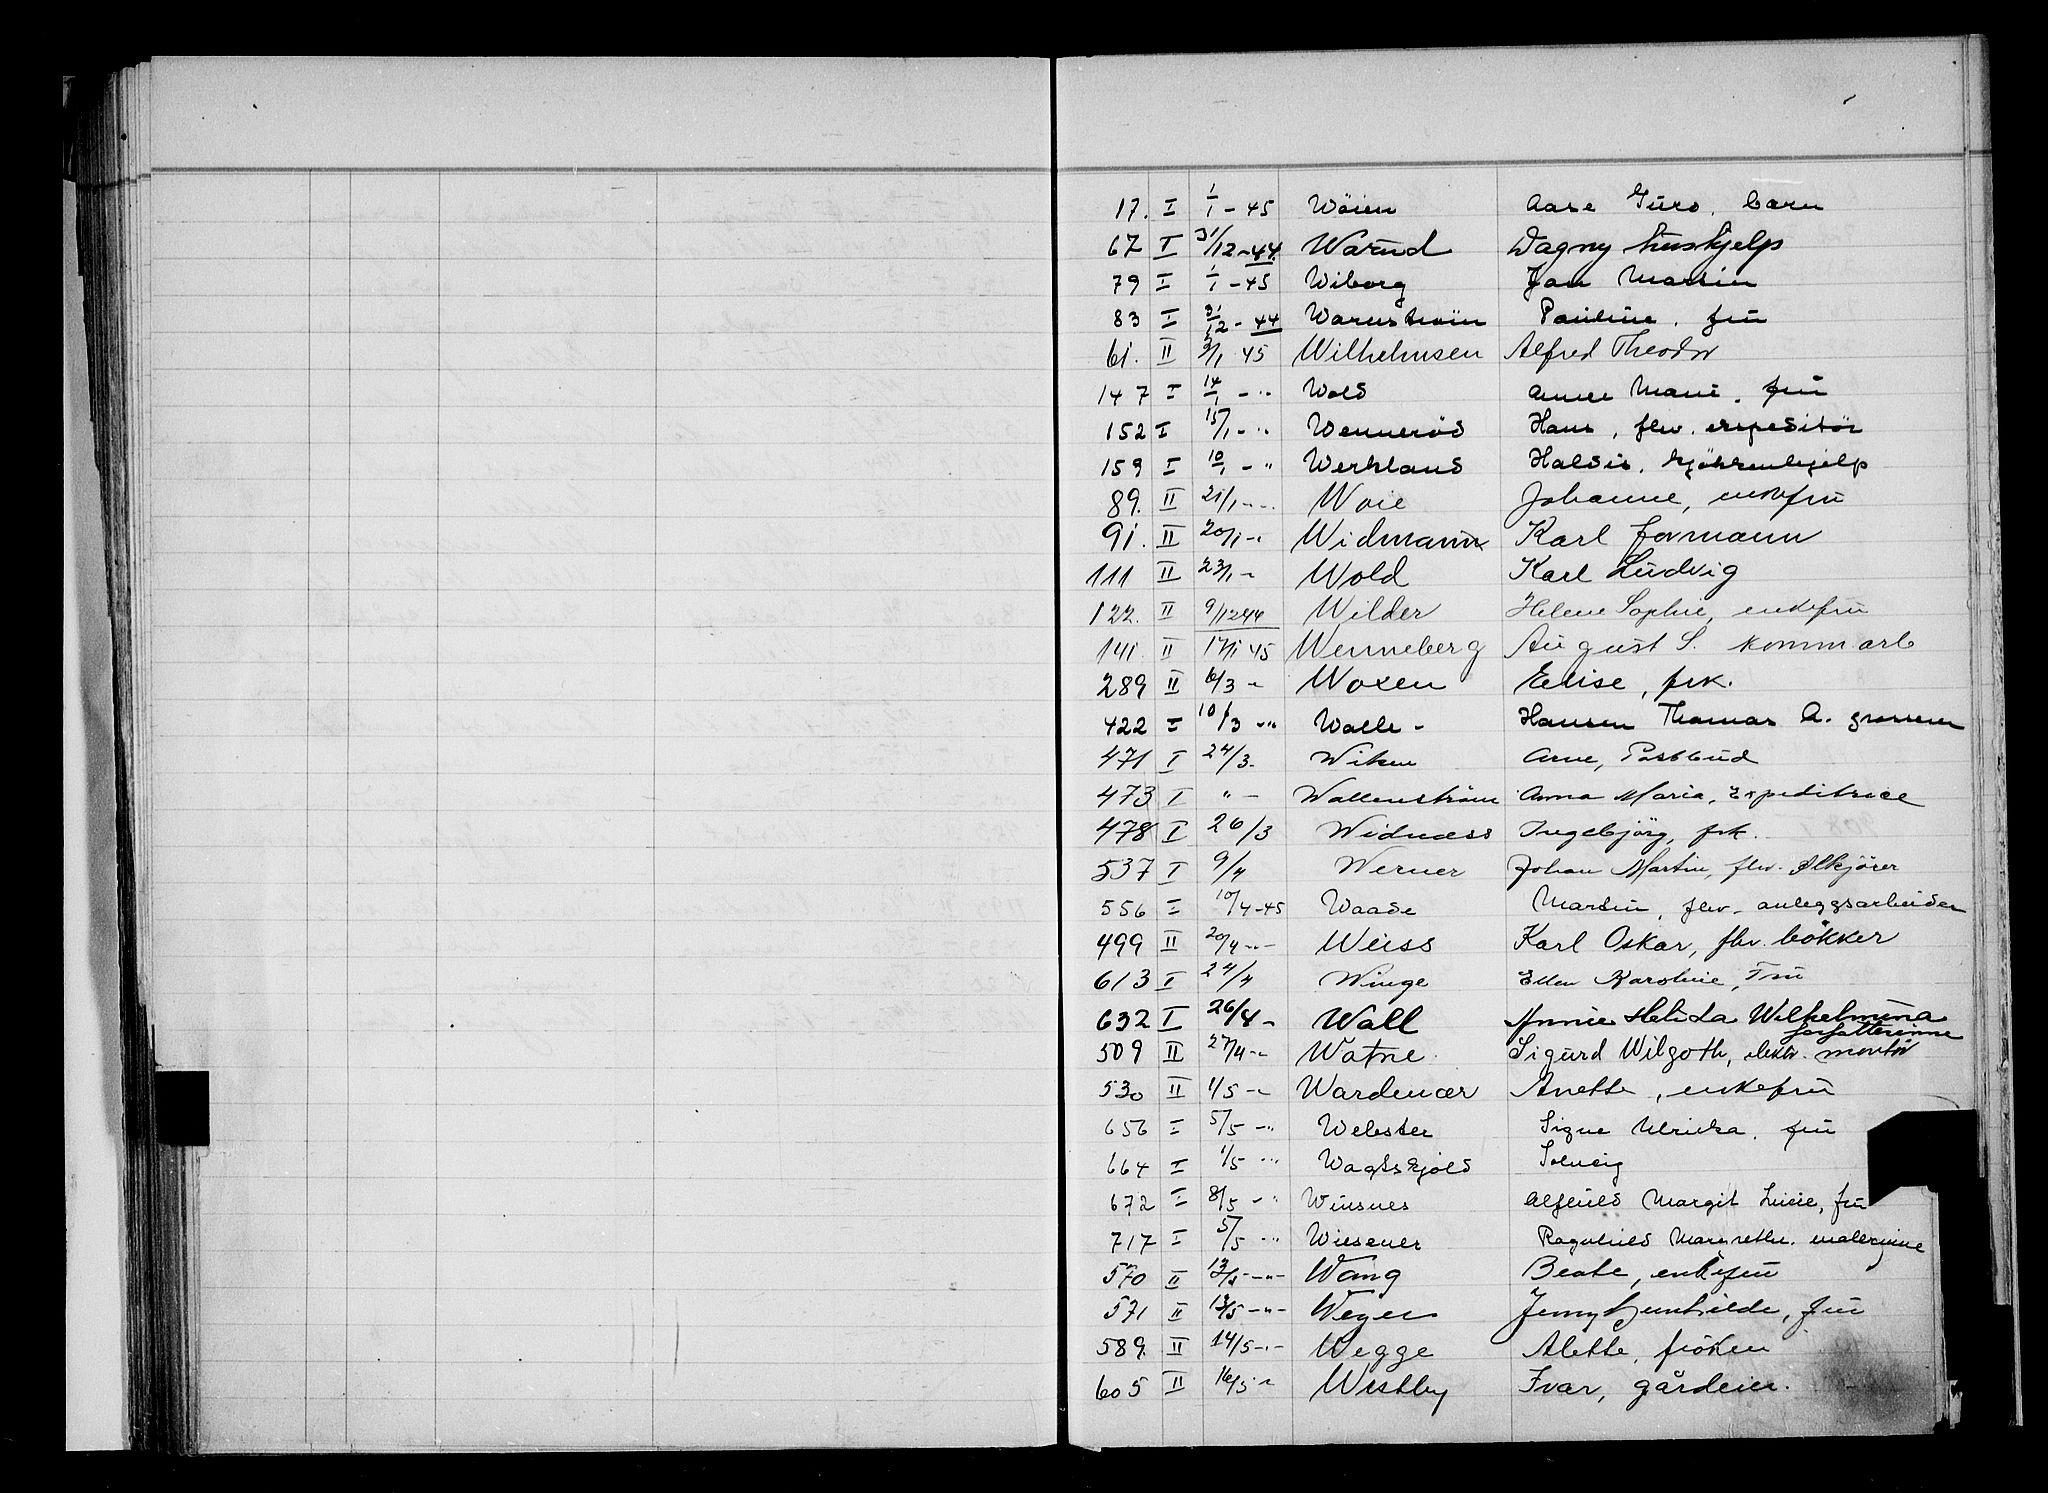 17. I 1/1 - 45 Wöien Aase Guro, barn
67 I 31/12 - 44. Warud Dagny huskjelp
79 I 1/1 - 45 Wiborg Jan Martin
83 I 31/12 - 44 Warnström Pauline, fru
61. II 2/1 45 Wilhelmsen Alfred Theodor
147 I 14/1 - " Wold Anna Marie, fru
152 I 15/1 - " Wennerød Hans, flw. expeditör
159 I 10/1 - " Werkland Haldis, kjökkenhjelp
89. II 21/1 - " Woie Johanne, enkefru
91. II 20/1 - " Widmann Karl formann
111 II 23/1 - Wold Karl Ludvig
122. II 9/12 44 Wilder Helene Sophie, enkefru
141. II 17/1 45 Wenneberg August S. komm. arb
289 II 6/3 - Woxen Elise, frk.
422 I 10/3 - " Walle - Hansen Thomas A. grosserer
471 I 24/3 - Wiken Arne, Postbud
473 I " - Wallenström Anna Maria, Expeditrice
478 I 26/3 Widnæss Ingebjörg, frk.
537 I 9/4 Werner Johan Martin, flw. Ølkjörer
556 I 10/4 - 45 Waade Martin, flw. anleggsarbeider
499 II 20/4 - " - Weiss Karl Oskar, flw. bökker
613 I 24/4 Winge Ellen Karoline, Fru
632 I 26/4 - Wall Annie Helida Wilhelmina forfatterinne
509 II 27/4 - " Watne Sigurd Wilgoth, elektr. montör
530 II 1/5 - " Wardenær Anette, enkefru
656 I 5/5 - " Webster Signe Ulrikka, fru
664 I 1/5 - " Wagtskjold Solveig
672 I 8/5 - " Winsnes Alfhild Margit Lucie, fru
717 I 5/5 - " Wiesener Ragnhild Margrethe, malerinne
570 II 12/5 - " - Wang Beate, enkefru
571 II 13/5 - " - Weger Jenny Gunhilde, fru
589. II 14/5 - " - Wegge Alette, fröken
605 II 16/5 - " Westby Ivar, gårdeier.